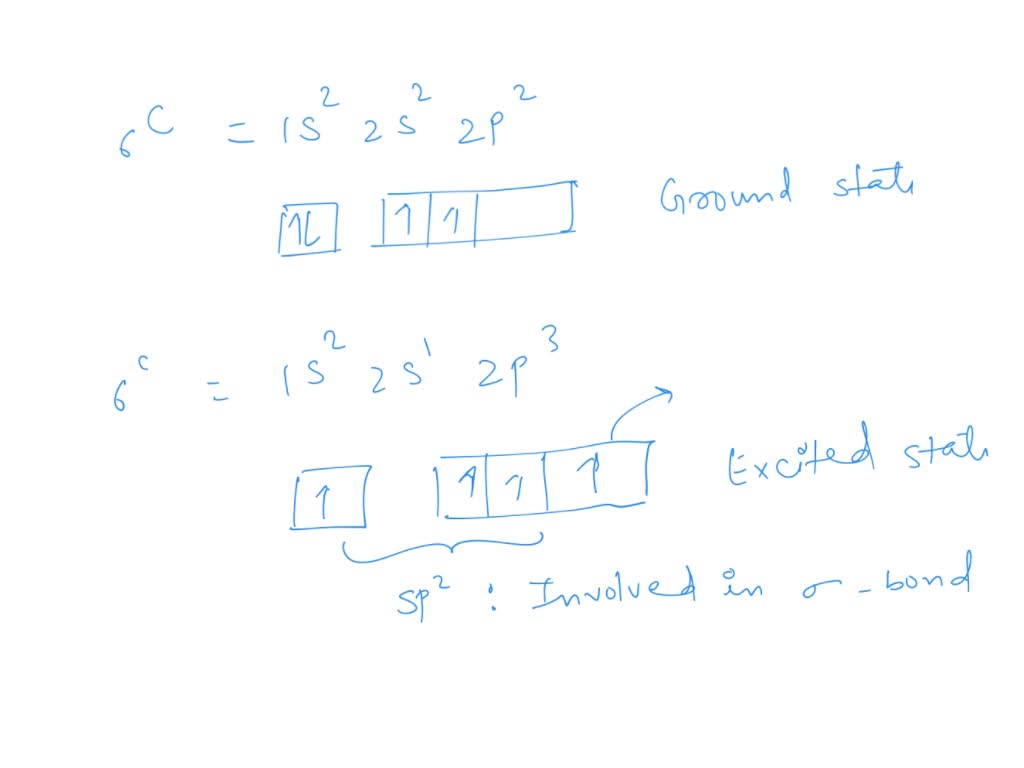 ₆C = 1s² 2s² 2p²
↑↓ ↑ ↑ Ground state
₆C = 1s² 2s¹ 2p³
↑ ↑ ↑ ↑ Excited state
sp² : Involved in σ-bond